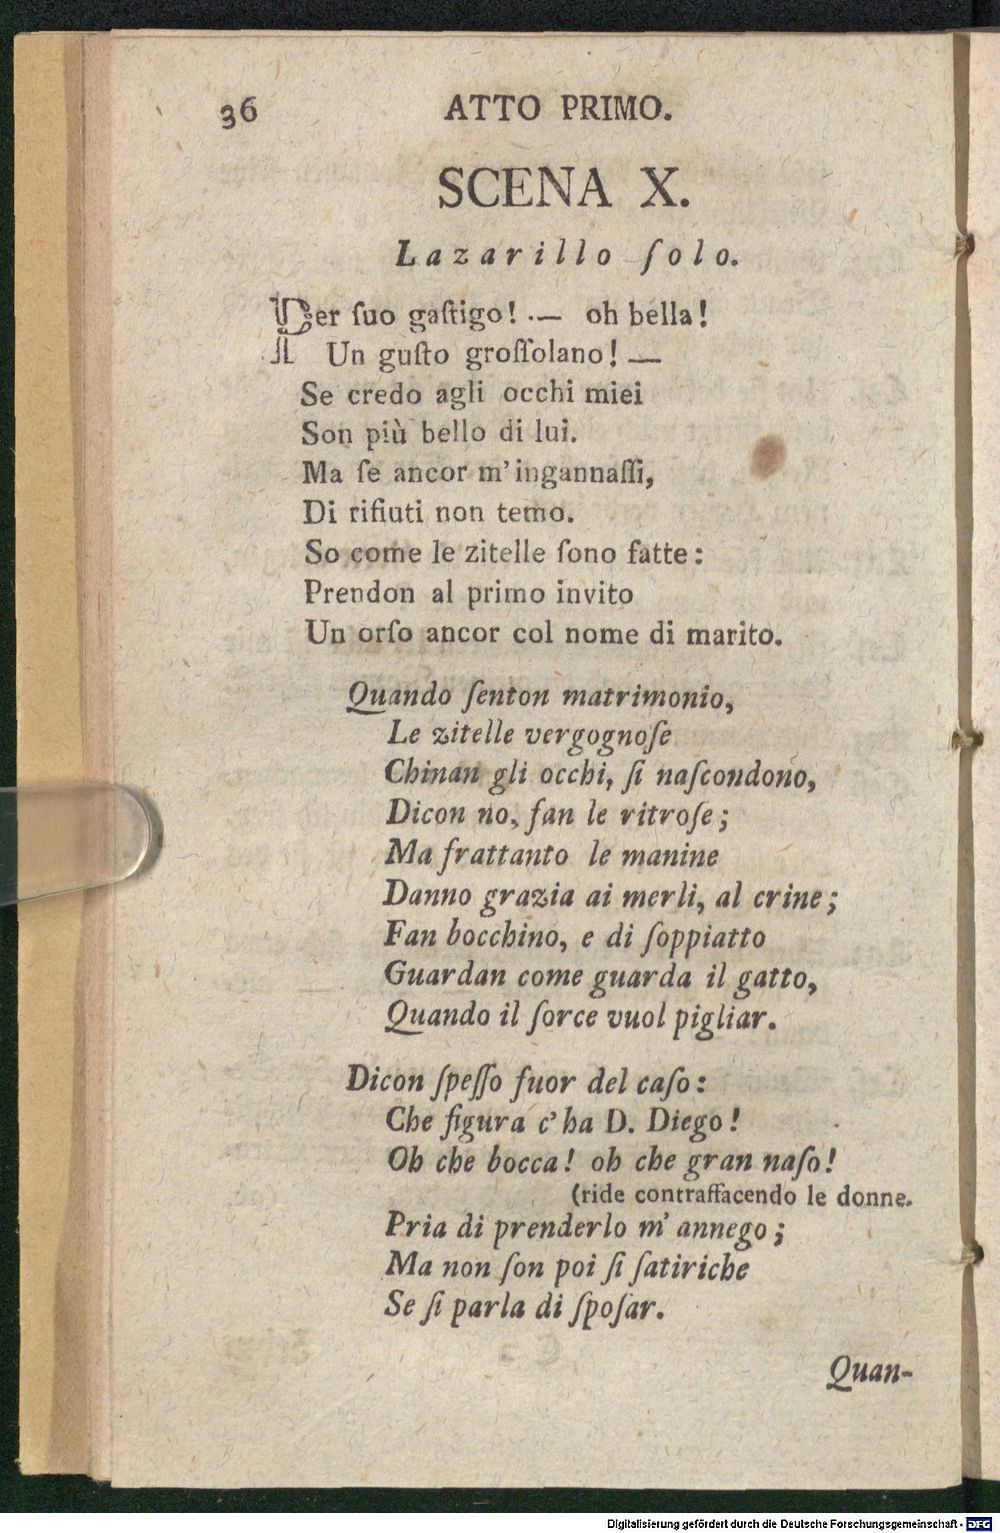 36 ATTO PRIMO.
SCENA X.
Lazarillo ſolo.
Per ſuo gaſtigo! .— oh bella!
Un guſto groſſolano! —
Se credo agli occhi miei
Son più bello di lui.
Ma ſe ancor m'ingannaſſi,
Di rifiuti non temo.
So come le zitelle ſono fatte:
Prendon al primo invito
Un orſo ancor col nome di marito.
Quando ſenton matrimonio,
Le zitelle vergognoſe
Chinan gli occhi, ſi naſcondono,
Dicon no, fan le ritroſe;
Ma frattanto le manine
Danno grazia ai merli, al crine;
Fan bocchino, e di ſoppiatto
Guardan come guarda il gatto,
Quando il ſorce vuol pigliar.
Dicon ſpeſſo fuor del caſo:
Che figura c'ha D. Diego!
Oh che bocca! oh che gran naſo!
(ride contraffacendo le donne.
Pria di prenderlo m' annego;
Ma non ſon poi ſi ſatiriche
Se ſi parla di ſpoſar.
Quan-
Digitalisierung gefördert durch die Deutsche Forschungsgemeinschaft - DFG